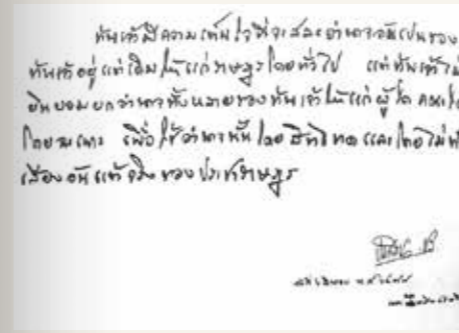 ข้าพเจ้ามีความเต็มใจที่จะสละอำนาจอันเป็นของ
ข้าพเจ้าอยู่แต่เดิมให้แก่ราษฎรโดยทั่วไป แต่ข้าพเจ้าไม่
ยินยอมยกอำนาจทั้งหลายของข้าพเจ้าให้แก่ผู้ใด คณะใด
โดยเฉพาะ เพื่อใช้อำนาจนั้นโดยสิทธิขาด และโดยไม่ฟัง
เสียงอันแท้จริงของประชาราษฎร